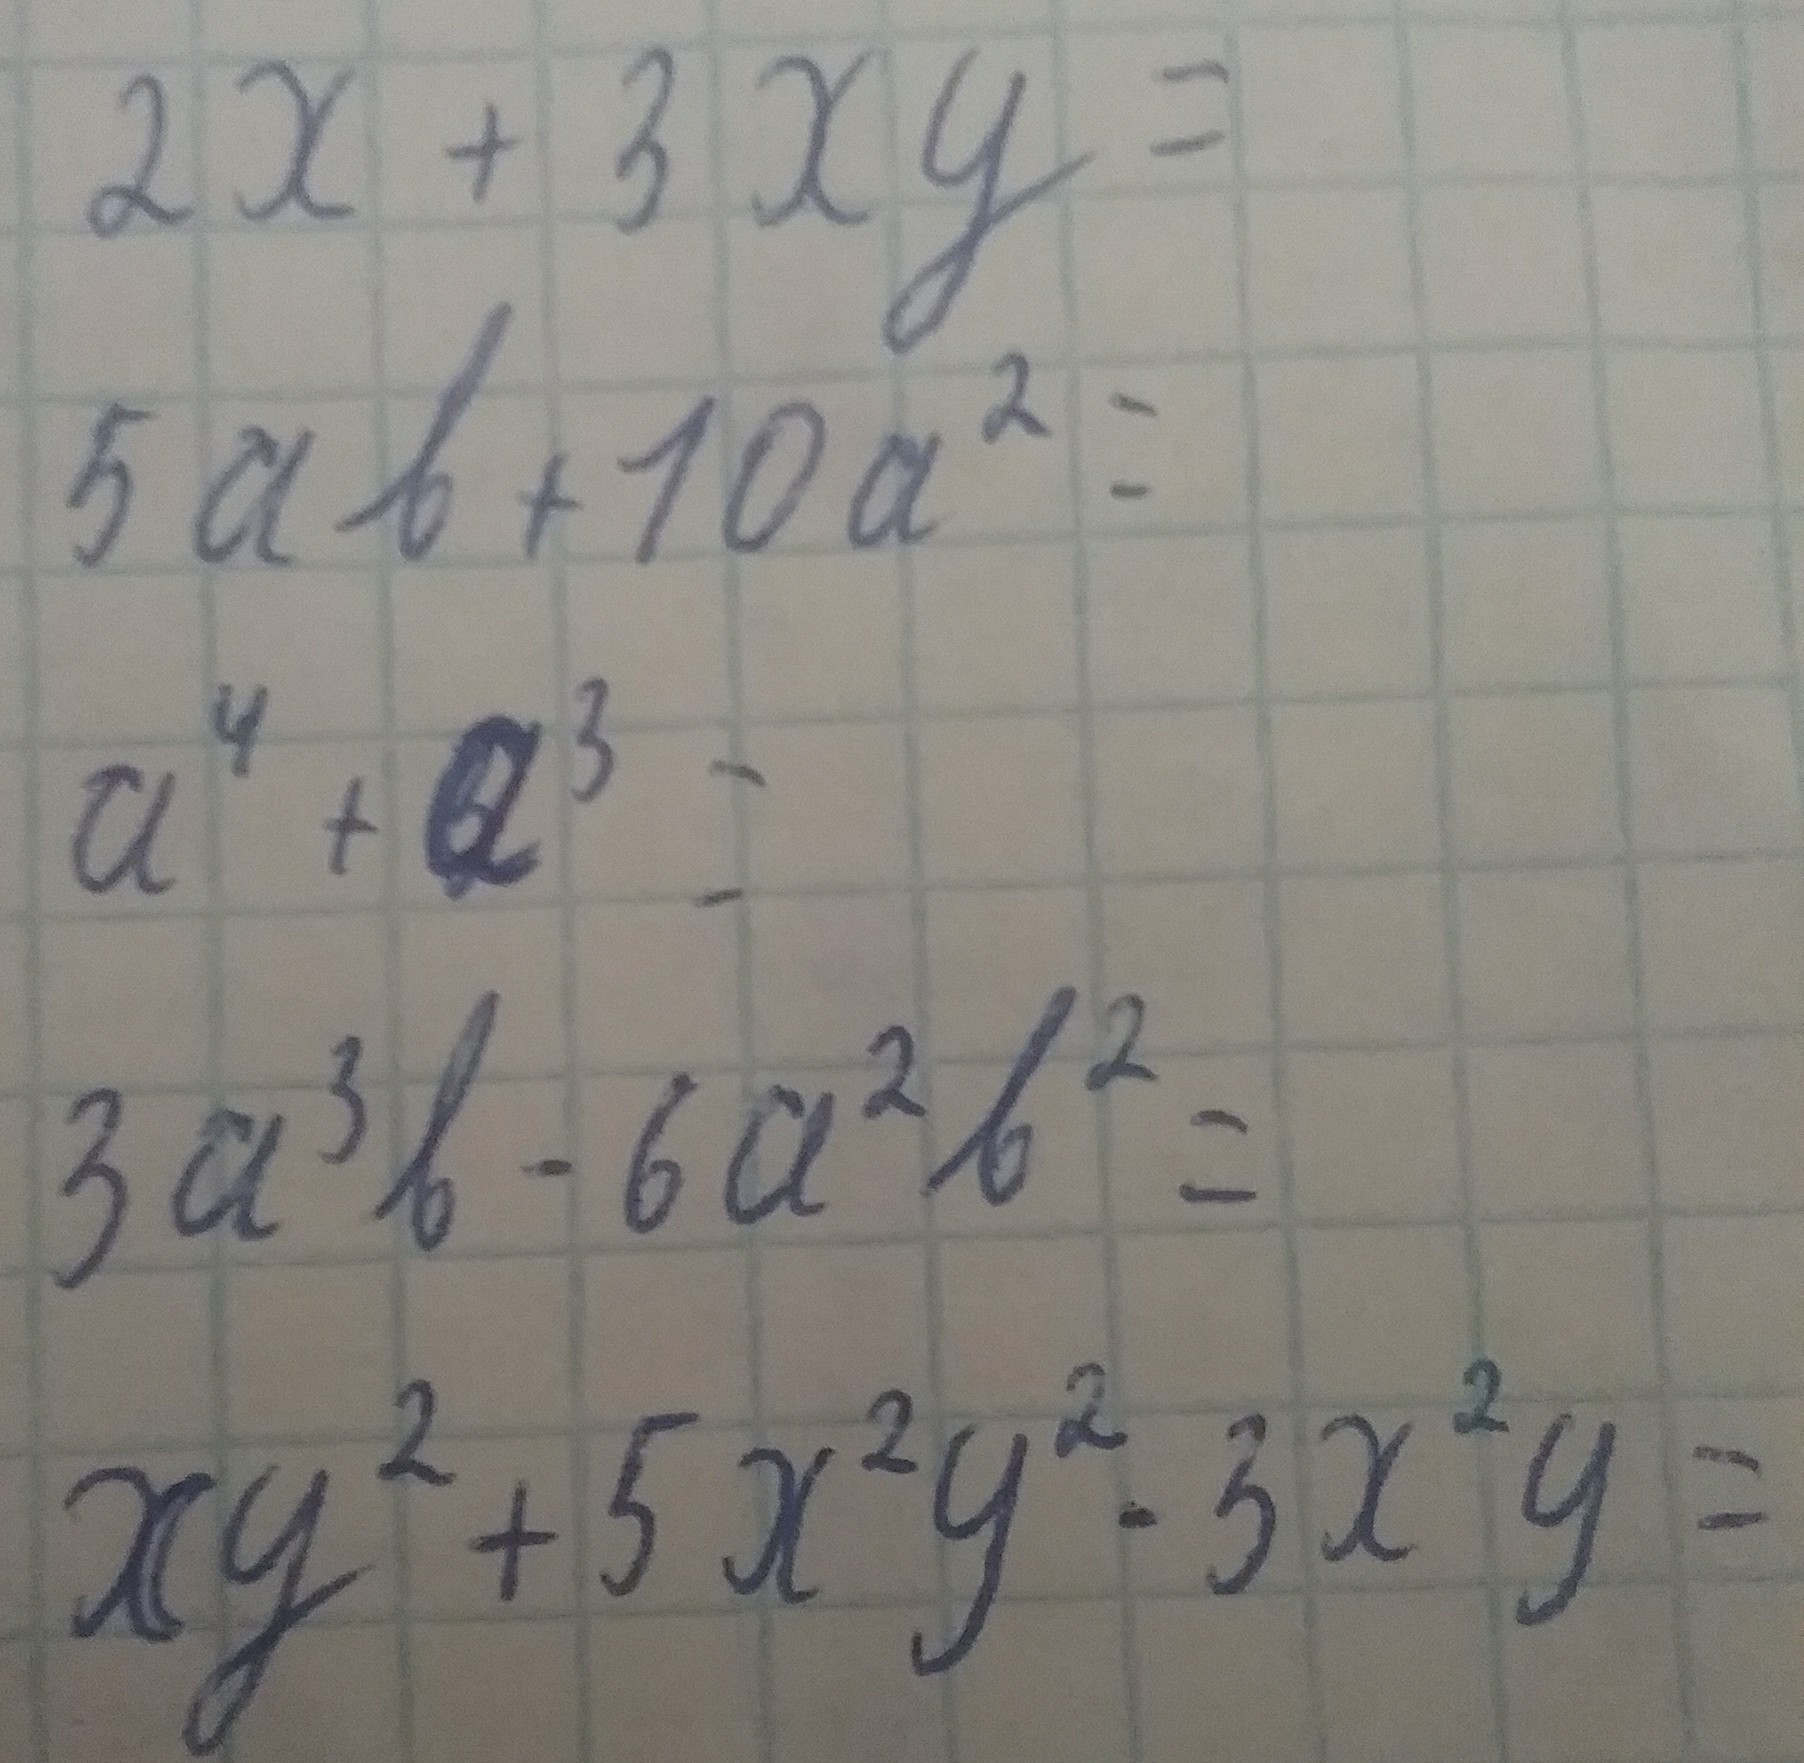 2x + 3xy =
5ab + 10a² =
a⁴ + a³ =
3a³b - 6a²b² =
xy² + 5x²y² - 3x²y =